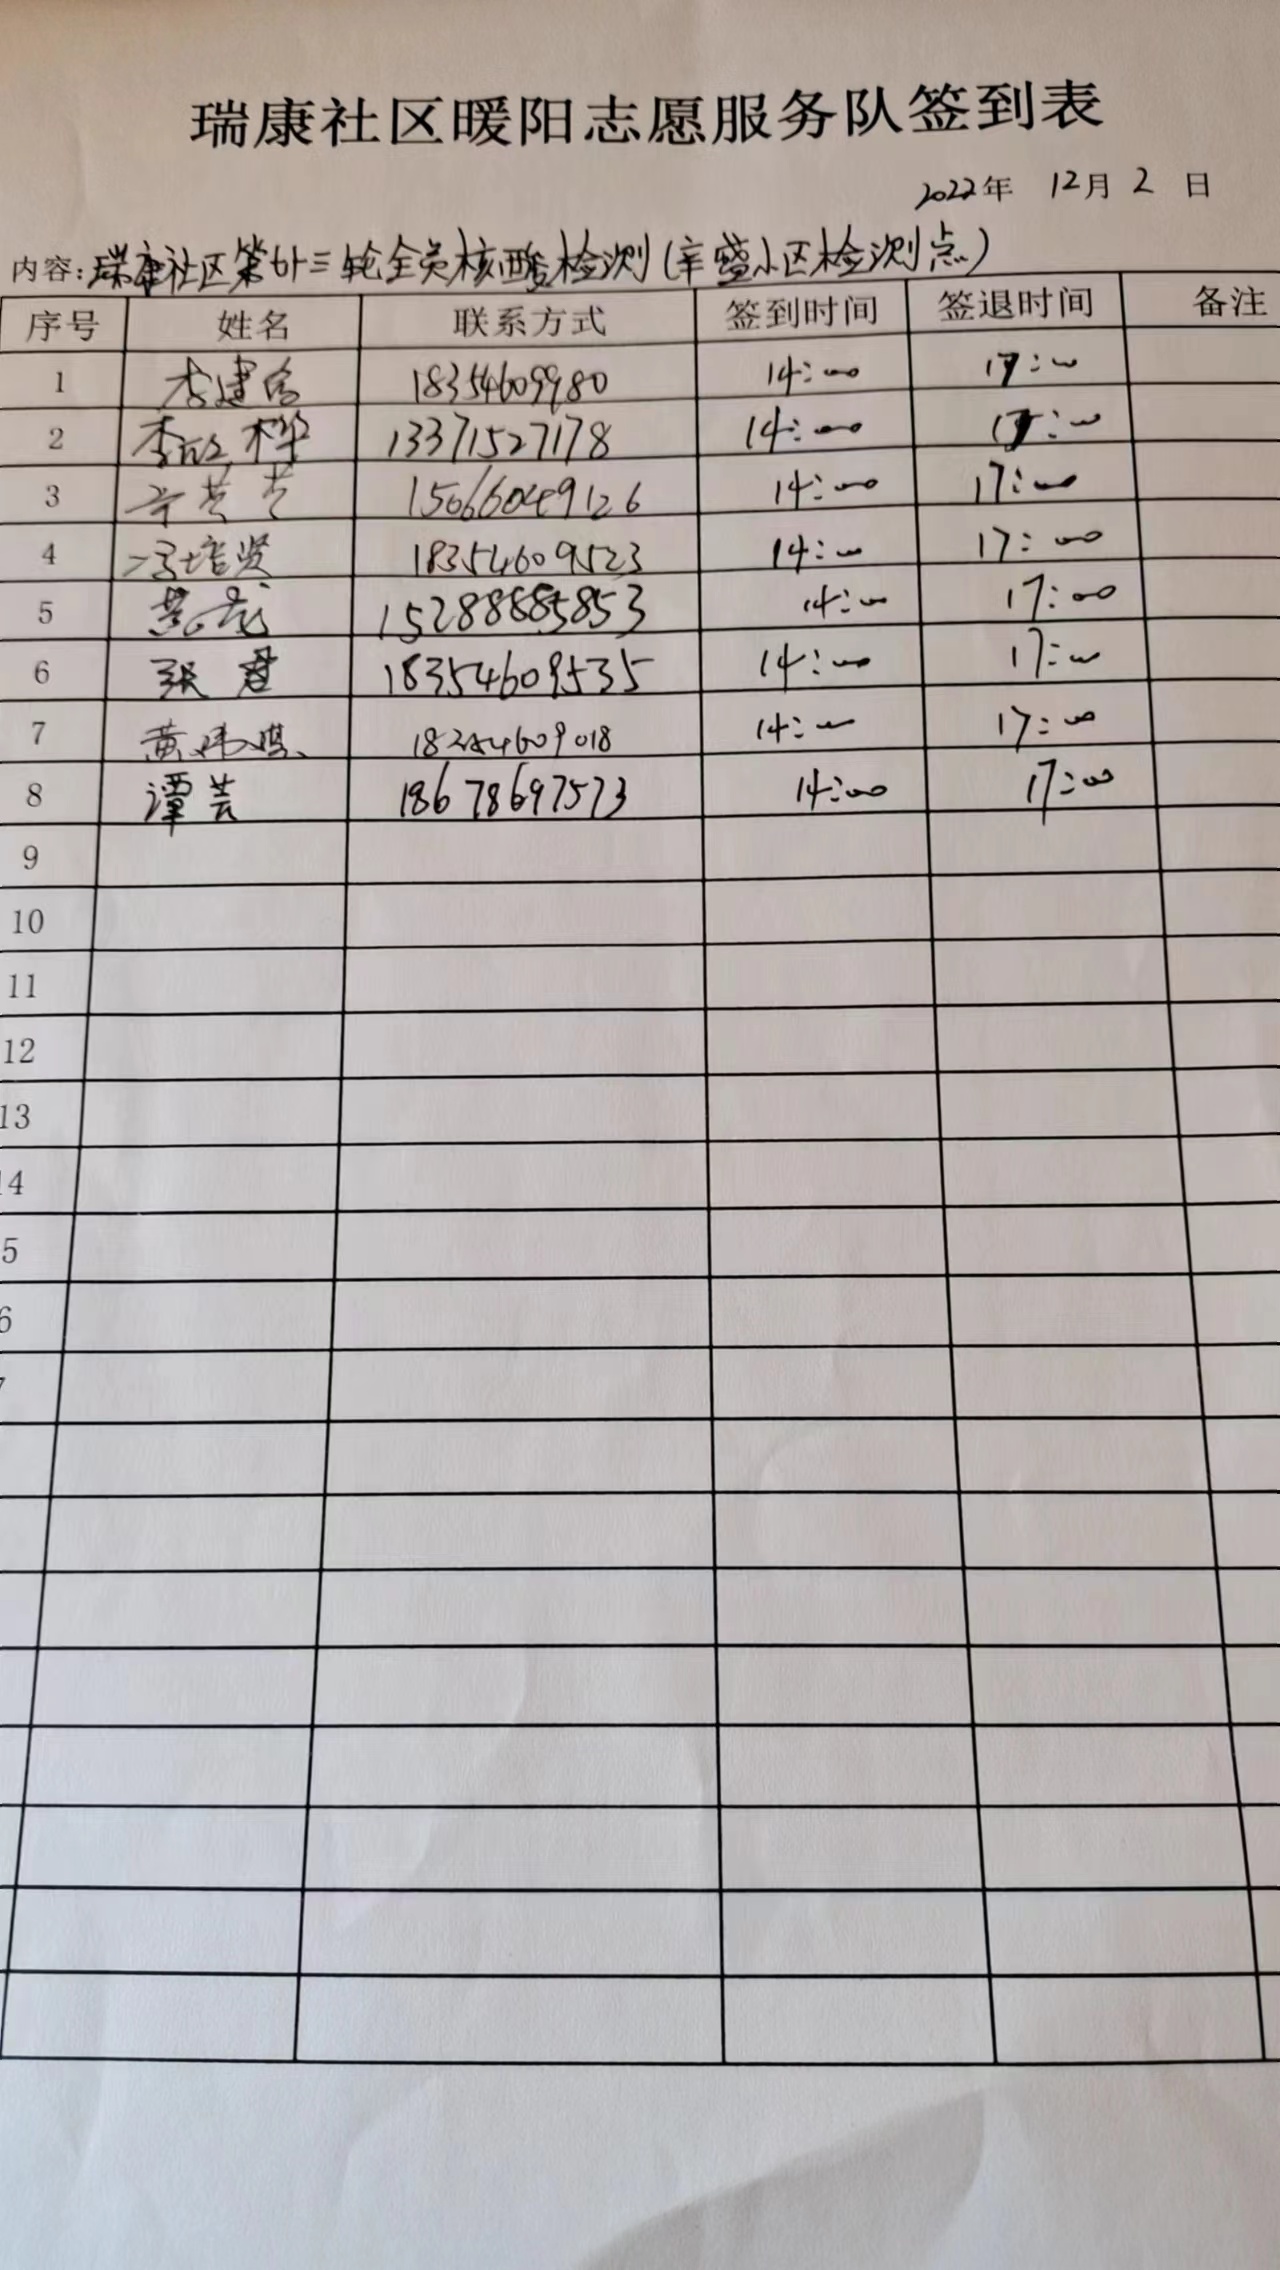 瑞康社区暖阳志愿服务队签到表
2022年 12月 2 日
内容:瑞康社区第廿三轮全员核酸检测(辛盛小区检测点)
序号 姓名 联系方式 签到时间 签退时间 备注
1 李建 18354609980 14:00 17:00
2 李 桦 13371527178 14:00 17:00
3 15066049126 14:00 17:00
4 冯培贤 18354609523 14:00 17:00
5 15288885853 14:00 17:00
6 张君 18354609535 14:00 17:00
7 黄 14:00 17:00
8 谭芸 18678697573 14:00 17:00
9
10
11
12
13
14
5
6
7